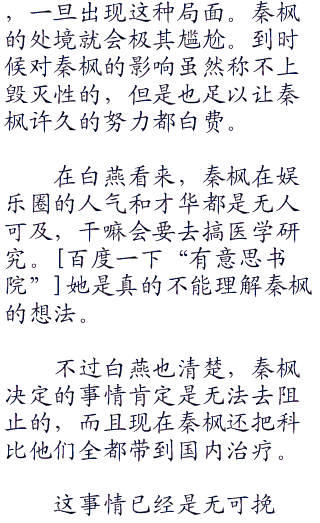 ，一旦出现这种局面。秦枫
的处境就会极其尴尬。到时
候对秦枫的影响虽然称不上
毁灭性的，但是也足以让秦
枫许久的努力都白费。
在白燕看来，秦枫在娱
乐圈的人气和才华都是无人
可及，干嘛会要去搞医学研
究。[百度一下“有意思书
院”]她是真的不能理解秦枫
的想法。
不过白燕也清楚，秦枫
决定的事情肯定是无法去阻
止的，而且现在秦枫还把科
比他们全都带到国内治疗。
这事情已经是无可挽